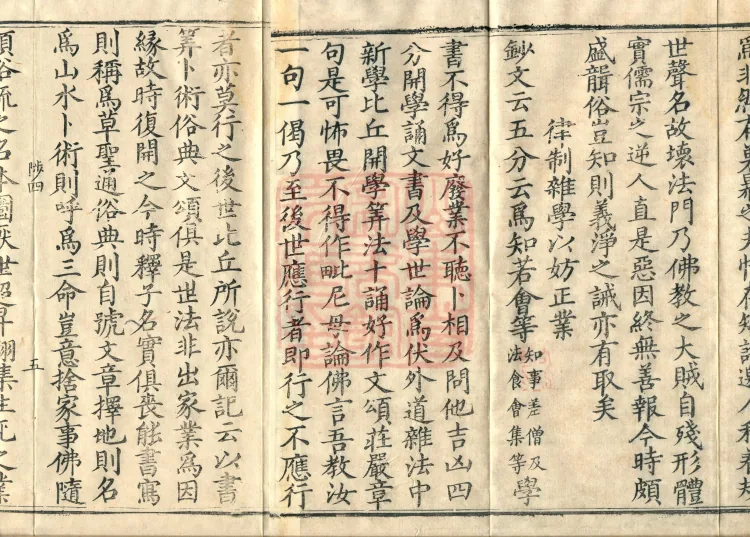 世聲名故壞法門乃佛教之大賊自殘形體
實儒宗之逆人直是惡因終無善報今時頗
盛聾俗豈知則義淨之誡亦有取矣
律制雜學以妨正業
鈔文云五分云爲知若會等知事差僧及法食會集等學以
書不得爲好廢業不聽卜相及問他吉凶四
分開學誦文書及學世論爲伏外道雜法中
新學比丘開學筭法十誦好作文頌莊嚴章
句是可怖畏不得作毗尼母論佛言吾教汝
一句一偈乃至後世應行者即行之不應行
者亦莫行之後世比丘所說亦爾記云以書
筭卜術俗典文頌俱是世法非出家業爲因
緣故時復開之今時釋子名實俱喪能書寫
則稱爲草聖通俗典則自號文章擇地則名
爲山水卜術則呼爲三命豈意捨家事佛隨
陟四
五
順俗流之名本圖厭世超昇翻集生死之業